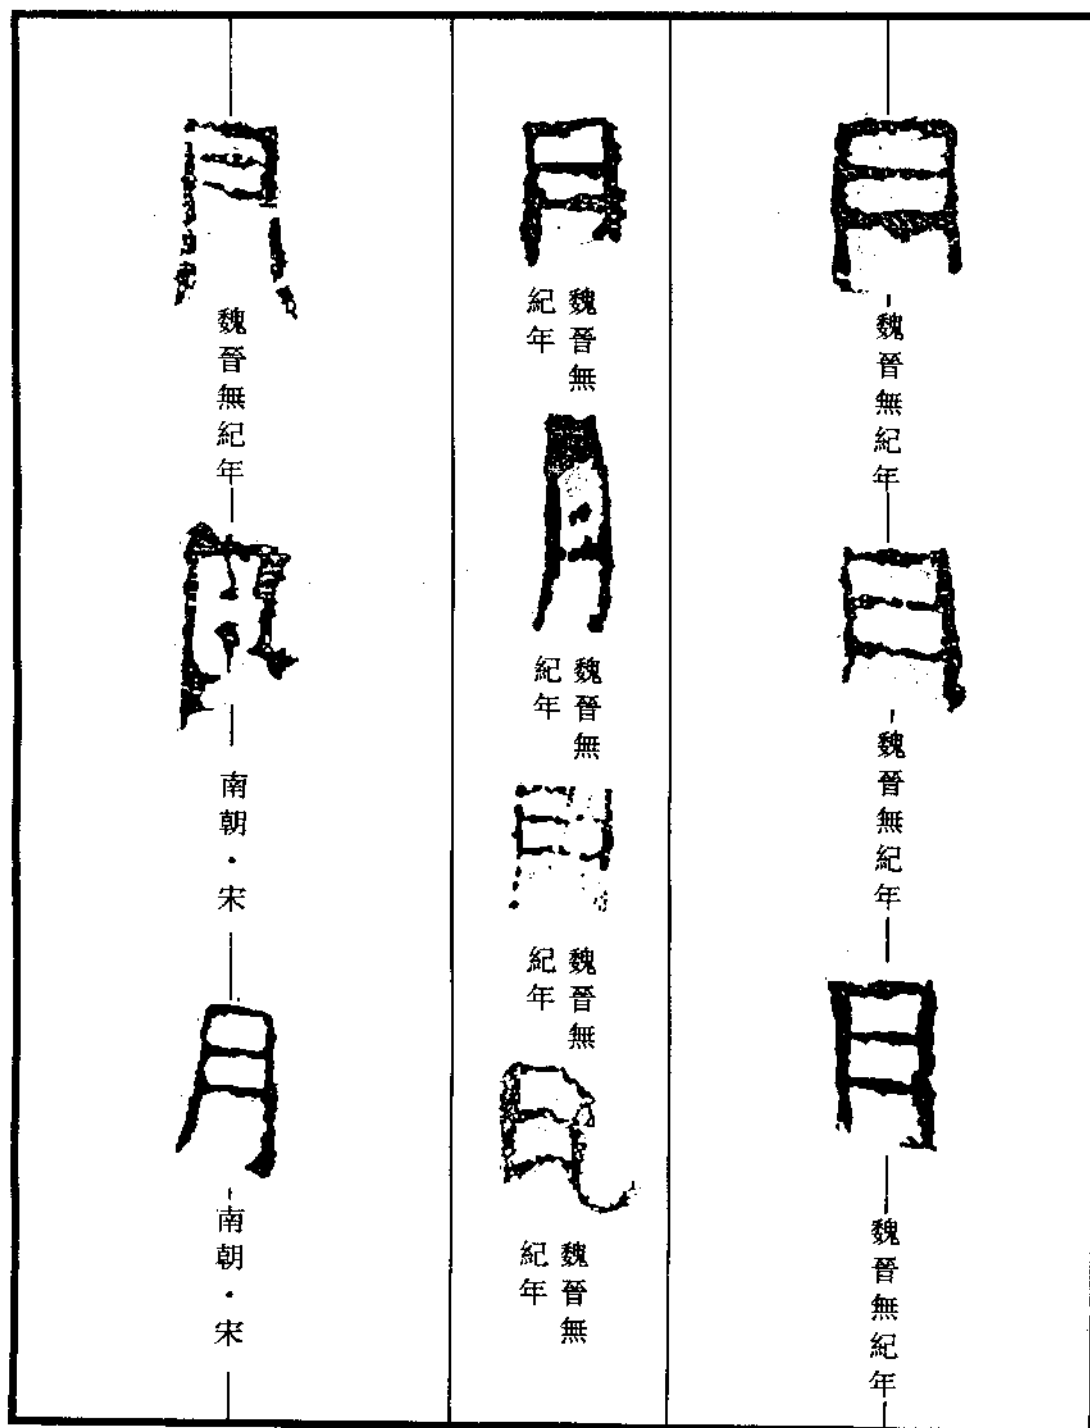 月
魏晉無紀年
月
魏晉無紀年
月
魏晉無紀年
月
魏晉無
紀年
月
魏晉無
紀年
月
魏晉無
紀年
月
魏晉無
紀年
月
魏晉無紀年
月
南朝·宋
月
南朝·宋